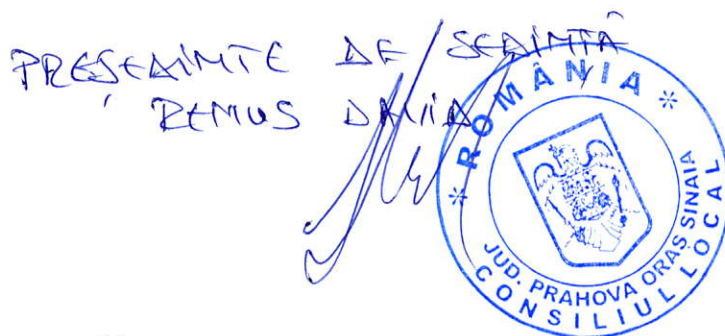 PREȘEDINTE DE ȘEDINȚĂ
REMUS
* ROMÂNIA *
JUD. PRAHOVA ORAȘ SINAIA
CONSILIUL LOCAL